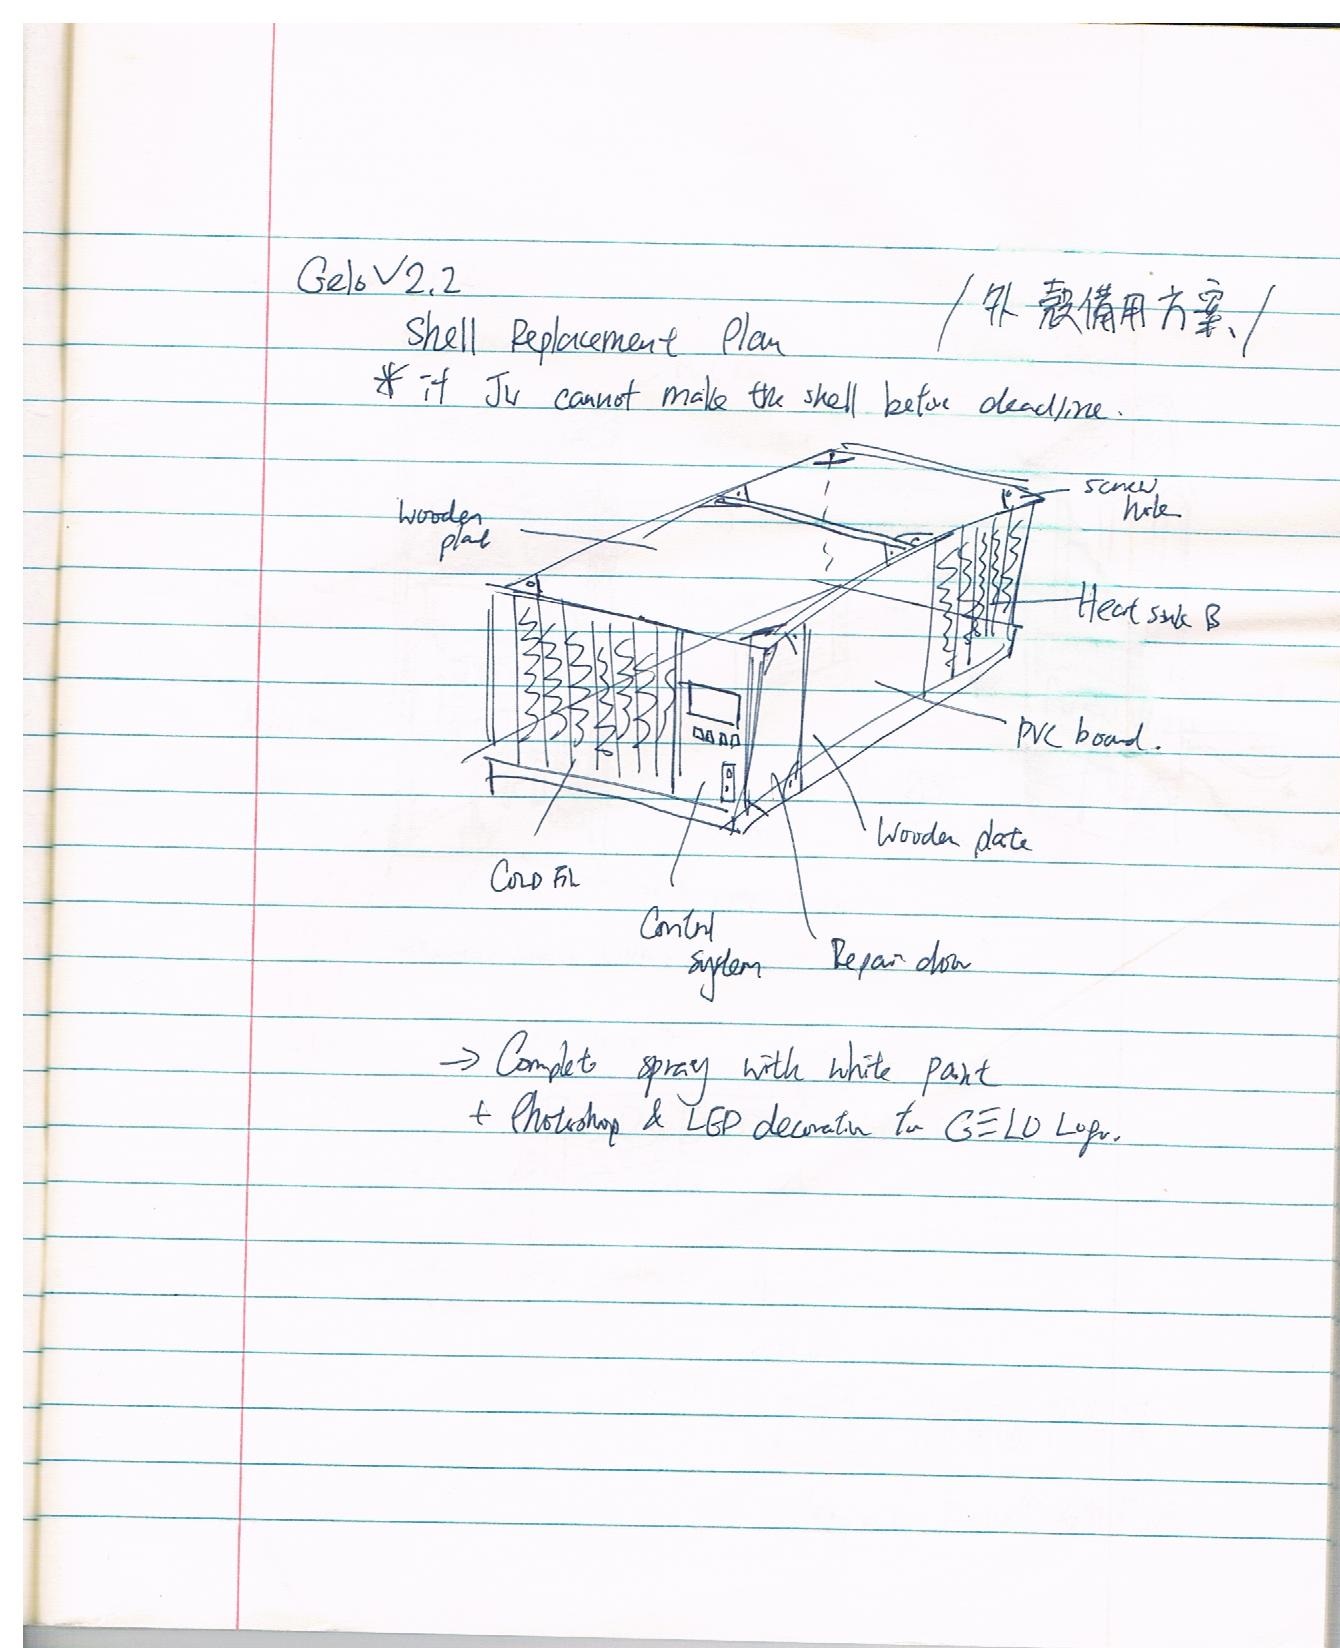 Gelo V2.2
/外殼備用方案、/
Shell Replacement Plan
* if JW cannot make the shell before deadline.
screw
hole
Wooden
plate
Heat sink B
PVC board.
Wooden plate
COLD
Control
system
Repair door
→ Complete spray with white paint
+ Photoshop & LED decoration for GELO Logo.